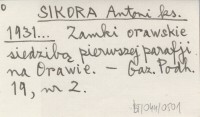 SIKORA Antoni ks.
1931... Zamki orawskie
siedzibą pierwszej parafji
na Orawie. — Gaz. Podh.
19, nr 2.